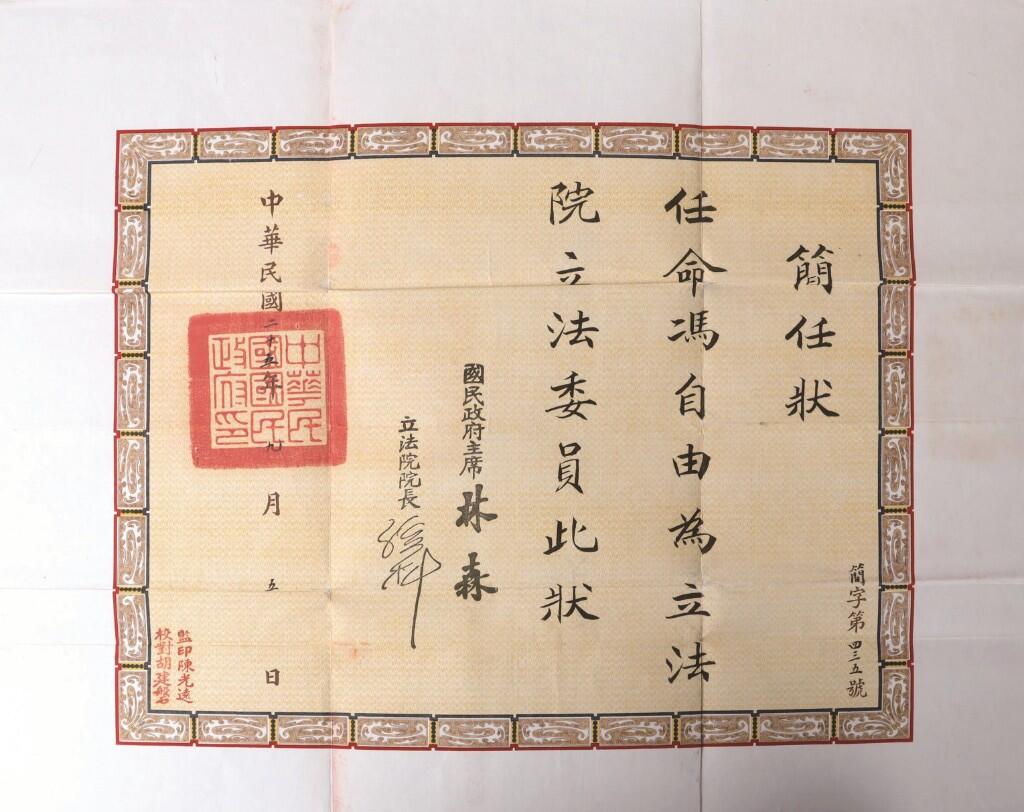 簡任狀
簡字第四三五號
任命馮自由為立法
院立法委員此狀
國民政府主席 林森
立法院院長 孫科
中華民國二十五年九月五日
中華民國國民政府印
監印陳光遠
校對胡建磐